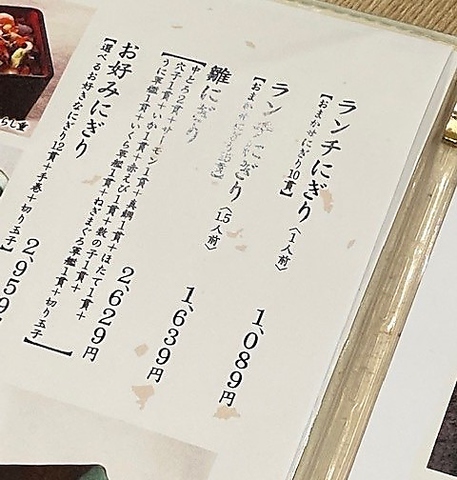 ランチにぎり〈1人前〉 1,089円
【おまかせにぎり10貫】
ランチにぎり〈1.5人前〉 1,639円
【おまかせにぎり15貫】
雛にぎり 2,629円
【中とろ2貫+サーモン1貫+真鯛1貫+ほたて1貫+
穴子1貫+いか1貫+赤えび1貫+数の子1貫+
うに軍艦1貫+いくら軍艦1貫+ねぎまぐろ軍艦1貫+切り玉子】
お好みにぎり 2,959
【選べるお好きなにぎり12貫+手巻+切り玉子】
らし重